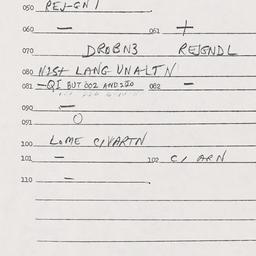 050 REJ-GN1
060 — 061 +
070 DROBN3 REJGNDL
080 N1ST LANG UNALTN
081 -QI BUT 002 AND 220 082 -
090 —
091 O
100 LOME C/VARTN
101 - 102 C/ ARN
110 -